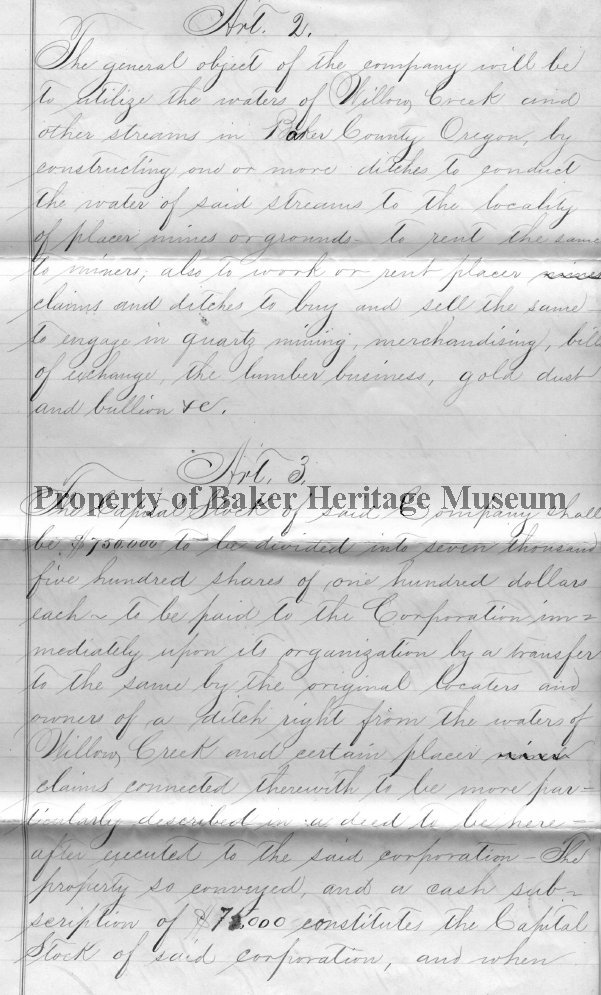 Art. 2.
The general object of the company will be
to utilize the waters of Willow Creek and
other streams in Baker County Oregon, by
constructing one or more ditches to conduct
the water of said streams to the locality
of placer mines or grounds - to rent the same
to miners; also to work or rent placer mines
claims and ditches to buy and sell the same -
to engage in quartz mining, merchandising, bills
of exchange, the lumber business, gold dust
and bullion &c.
Art. 3.
Property of Baker Heritage Museum
The Capital Stock of said Company shall
be $750.000 to be divided into seven thousand
five hundred shares of one hundred dollars
each - to be paid to the Corporation im=
mediately upon its organization by a transfer
to the same by the original locaters and
owners of a ditch right from the waters of
Willow Creek and certain placer mines
claims connected therewith to be more par=
ticularly described in a deed to be here=
after executed to the said corporation - The
property so conveyed, and a cash sub=
scription of $ constitutes the Capital
Stock of said corporation, and when